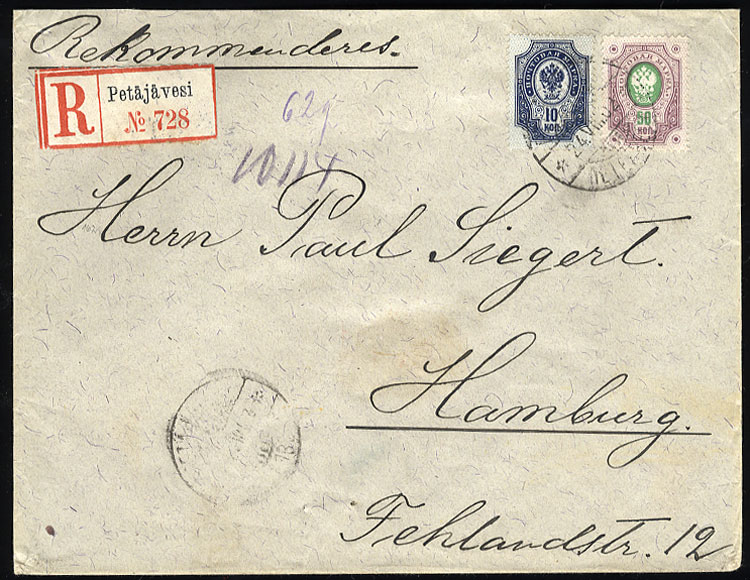 Rekommenderes.
R Petäjävesi
№ 728
ПОЧТОВАЯ МАРКА
10
КОП.
ПОЧТОВАЯ МАРКА
50
КОП.
Herrn Paul Siegert.
Hamburg.
Fehlandstr. 12